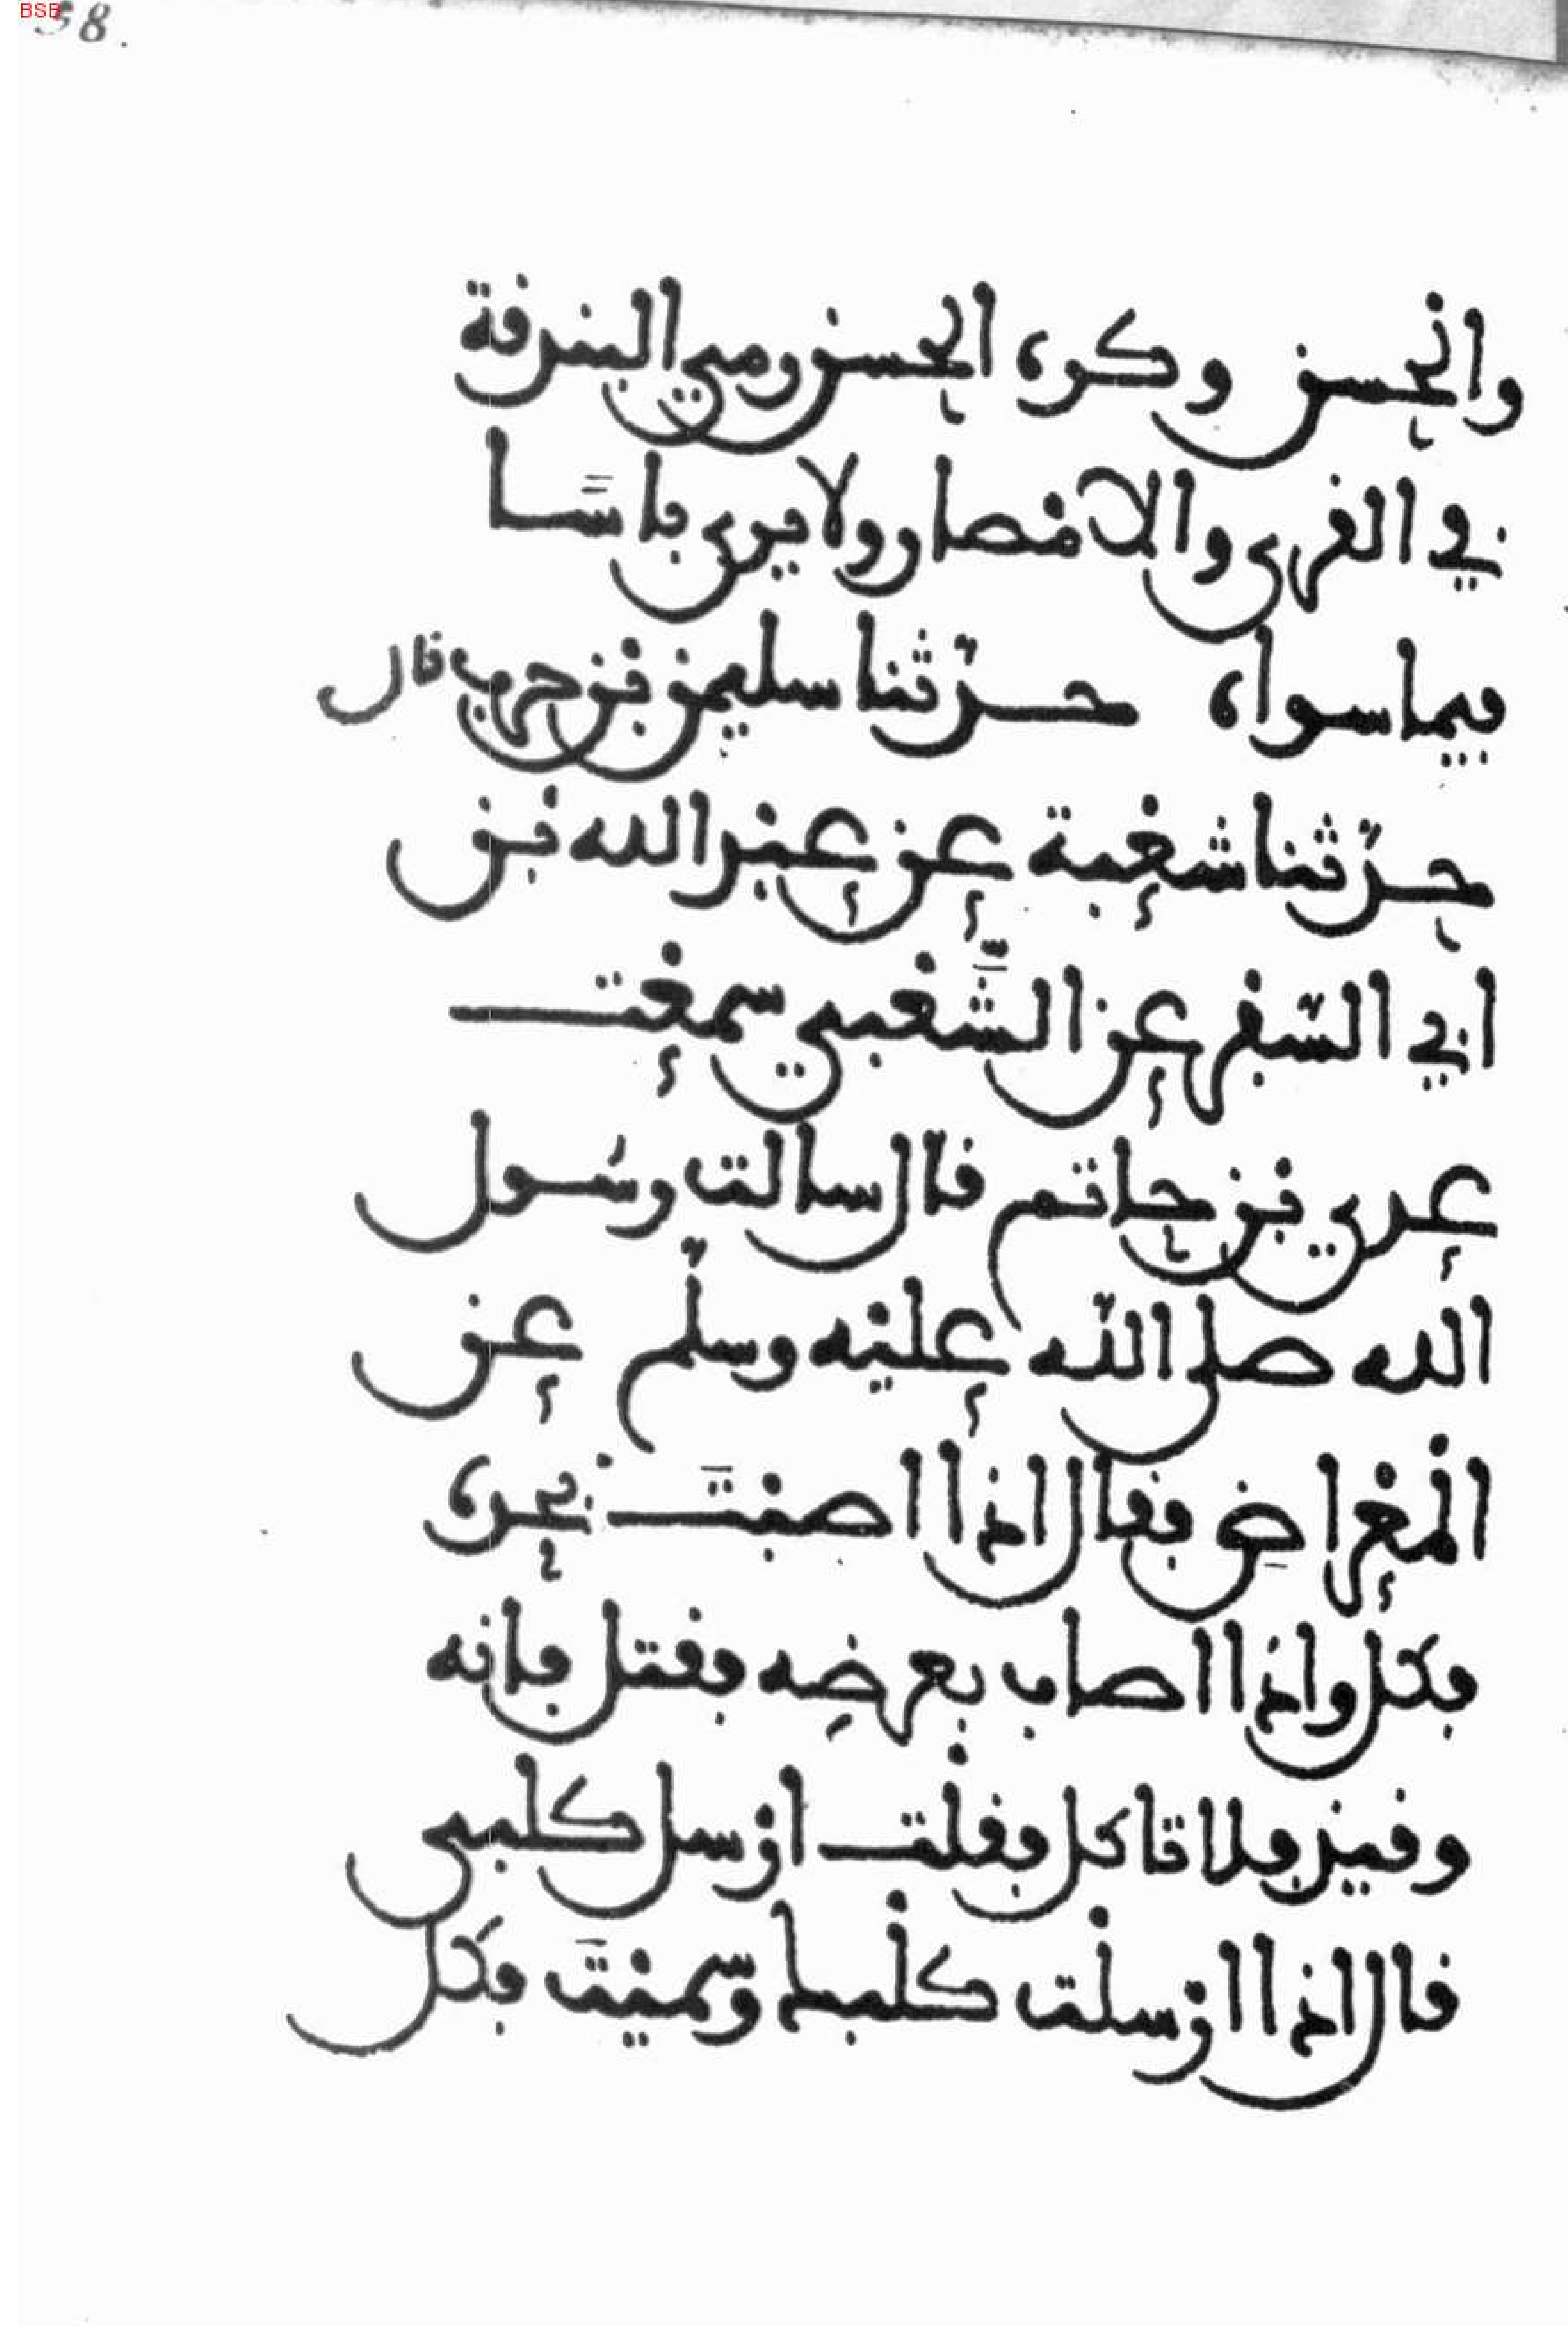 58.
BSB
والحسن وكره الحسن رمي البندقة
في القرى والامصار ولا يرى باسا
فيما سواه حدّثنا سليمن بن حرب قال
حدّثنا شعبة عن عبد الله بن
ابي السّفر عن الشَّعبي سمعت
عدي بن حاتم قال سالت رسُول
الله صلى اللّه عليه وسلّم عن
المعراض فقال اذا اصبتَ بحده
فكل واذا اصاب بعرضِه فقتل فانه
وقيذ فلا تاكل فقلت ارسل كلبي
قال اذا ارسلت كلبك وسّميتَ فكُل